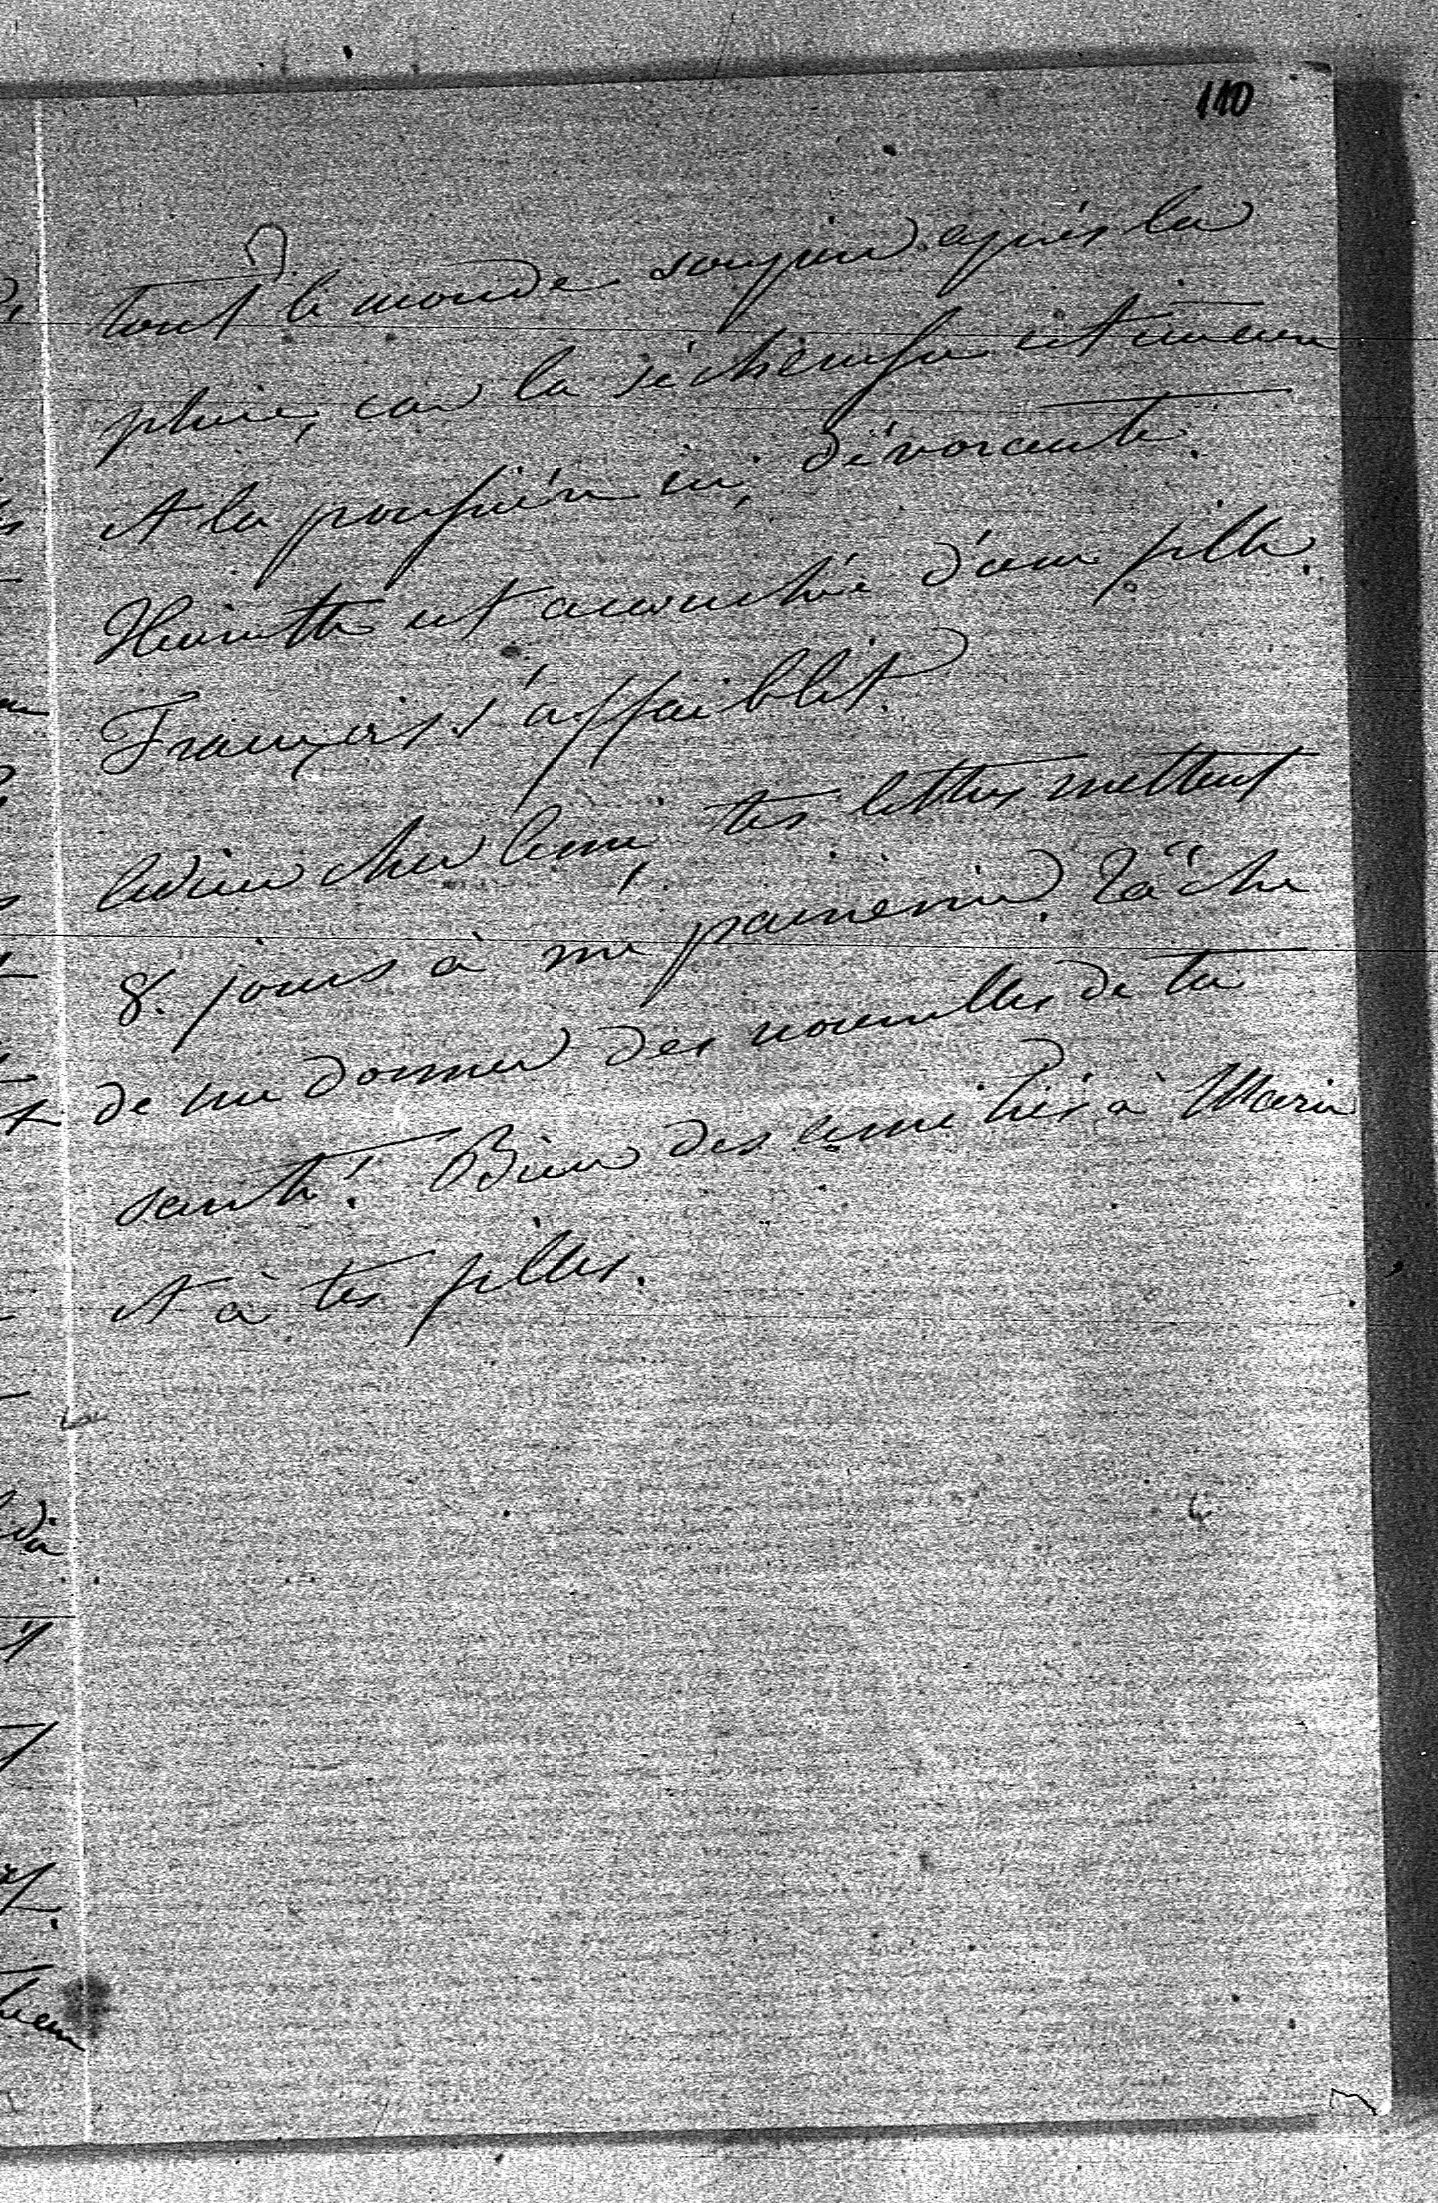 110
tout le monde soupire après la
pluie, car la sécheresse est
et la poussière ici, dévorante.
Henriette est accouchée d'une fille.
François s'affaiblit.
Adieu cher ami, tes lettres mettent
8. jours à me parvenir. Tâche
de me donner des nouvelles de ta
santé! Bien des amitiés à Marie
et à tes filles.